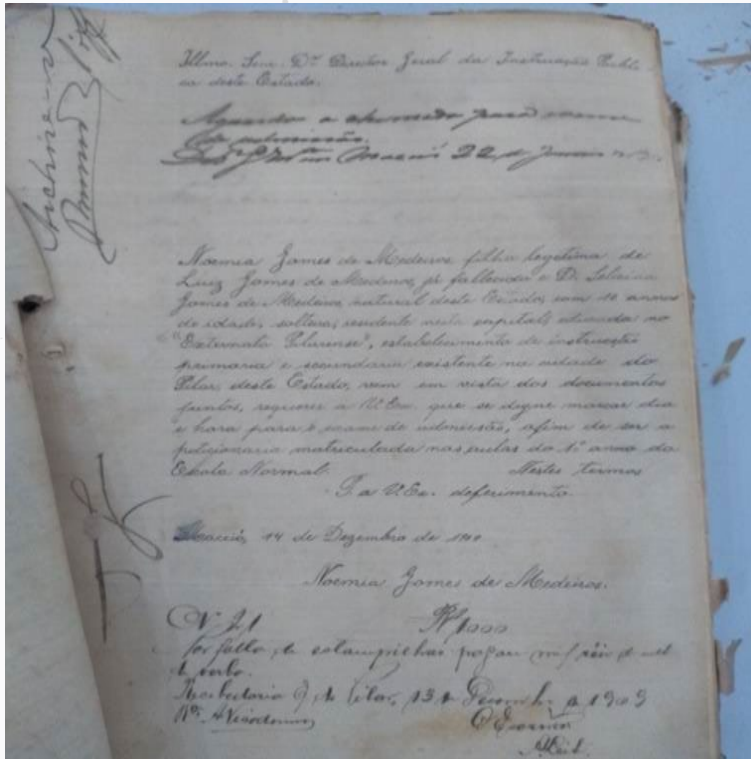 Illmo. Snr. Dr. Director Geral da Instrucção Publi
ca deste Estado.
Aguarde a chamada para exame
de admissão.
Maceió 22 de Janeiro
Noemia Gomes de Medeiros filha legitima de
Luiz Gomes de Medeiros, já fallecido e D.
Gomes de Medeiros, natural deste Estado, com annos
de idade, solteira, residente nesta capital, educada no
"Externato Pilarense", estabelecimento de instrucção
primaria e secundaria existente na cidade do
Pilar, deste Estado, vem em vista dos documentos
juntos, requerer a V. Exa. que se digne marcar dia
e hora para o exame de admissão, afim de ser a
peticionaria matriculada nas aulas do 1º anno da
Escola Normal. Nestes termos
P. a V. Exa. deferimento.
Maceió, 14 de Dezembro de
Noemia Gomes de Medeiros.
Nº 21 Rs 1000
Por falta de estampilhas pagou mil réis de
de verba.
Recebedoria do Pilar, 13 de Dezembro de 1909
O Escrivão